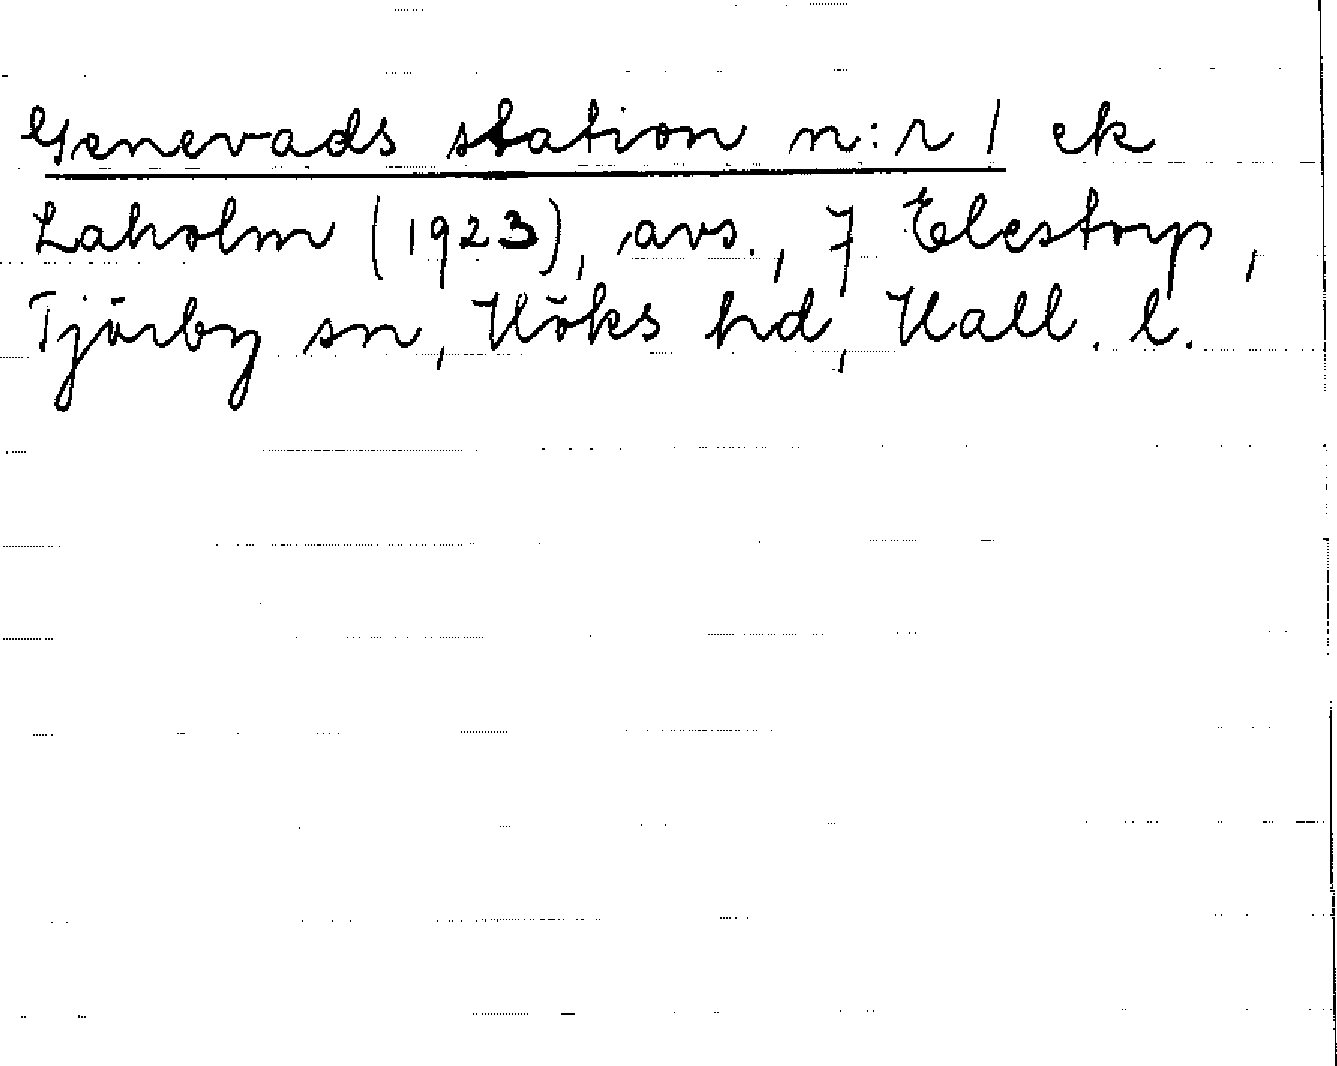 Genevads station n:r 1 ek
Laholm (1923), avs., 7 Elestorp,
Tjärby sn, Höks hd, Hall. l.